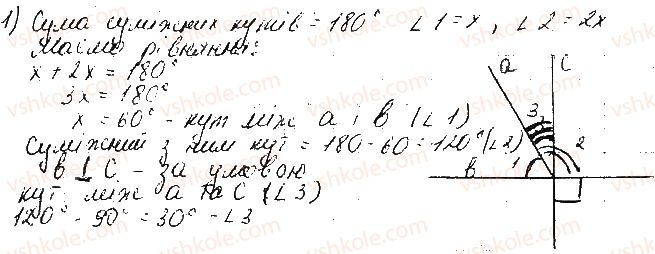 1) Сума суміжних кутів = 180° ∠1 = x, ∠2 = 2x
Маємо рівняння:
x + 2x = 180°
3x = 180°
x = 60° - кут між a і b (∠1)
Суміжний з ним кут = 180 - 60 = 120° (∠2)
b ⊥ C - за умовою
кут між a та C (∠3)
120° - 90° = 30° - ∠3
a
C
3
2
1
b
vshkole.com